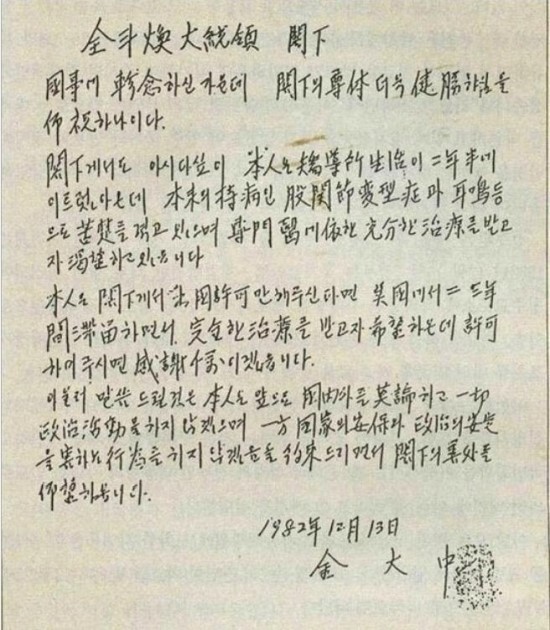 全斗煥 大統領 閣下
國事에 軫念하신 가운데 閣下의 尊体 더욱 健勝하심을
仰祝하나이다.
閣下께서도 아시다싶이 本人은 矯導所 生活이 二年半에
이르렀사온데 本来의 持病인 股関節 変型症과 耳鳴等
으로 苦楚를 겪고 있으며 専門醫에 依한 充分한 治療를 받고
자 渴望하고 있읍니다
本人은 閣下께서 出國許可만 해주신다면 美國에서 二 三年
間 滞留하면서 完全한 治療를 받고자 希望하온데 許可
하여주시면 感謝 千萬이겠읍니다.
아울러 말씀 드릴 것은 本人은 앞으로 國内外를 莫論하고 一切
政治活動을 하지 않겠으며 一方 國家의 安保와 政治의 安定
을 害하는 行為를 하지 않겠음을 約束드리면서 閣下의 善処를
仰望하옵니다.
1982年 12月 13日
金 大 中